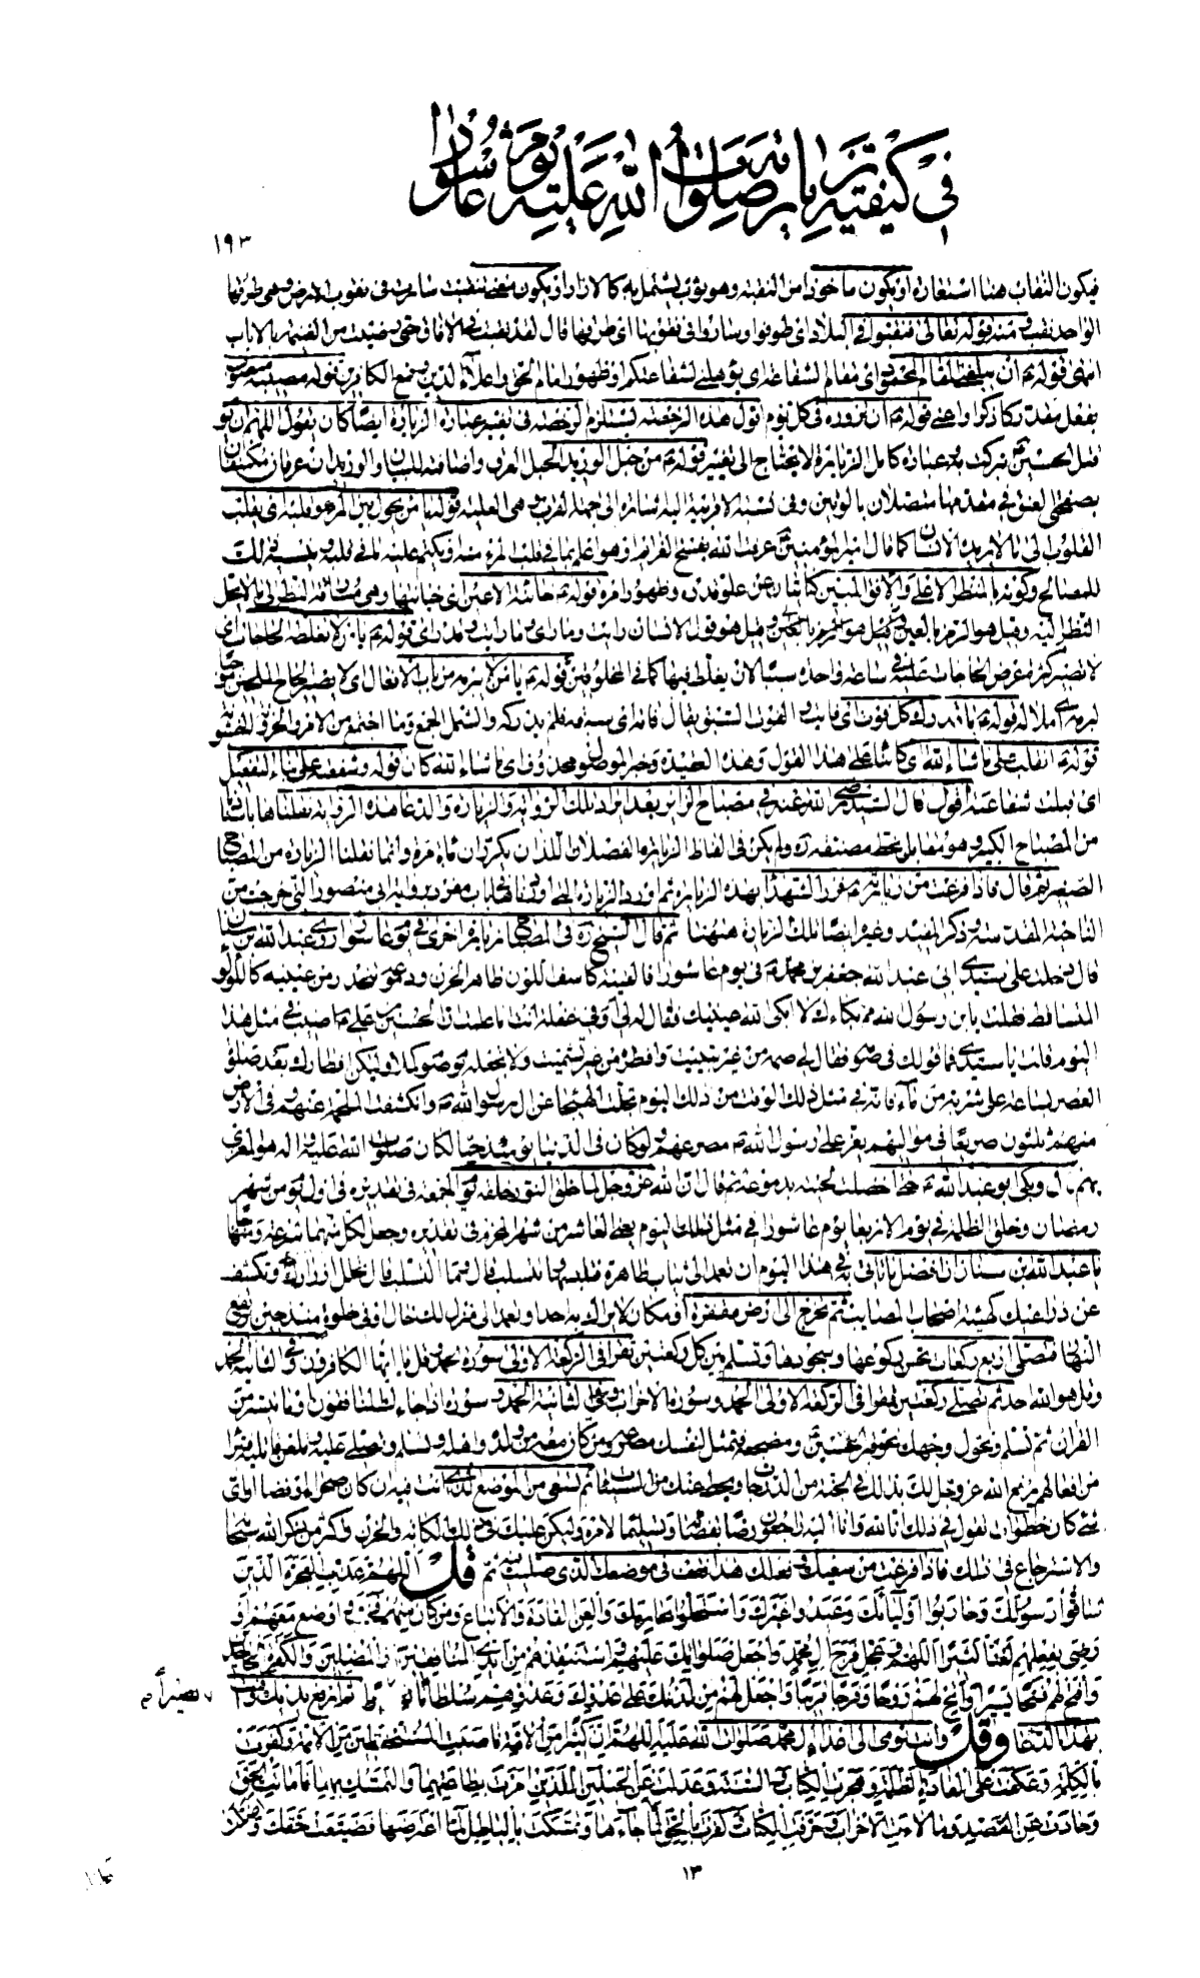 في كيفية زيارته صلوات الله عليه يوم عاشورا
١٩٣
فيكون النقاب هنا استعارة او يكون ماخوذا من النقبة وهو ثوب يشتمل به كالازار او يكون معنى تنقبت سارت في نقوب الارض وهي طرقها
الواحد نقب منه قوله تعالى فنقبوا في البلاد اي طوفوا وساروا في نقوبها اي طرقها قال لقد نقبت في الافاق حتى رضيت من الغنيمة بالاياب
انتهى قوله ان يبلغني المقام المحمود اي مقام الشفاعة اي يؤهلني لشفاعتكم او ظهور امام الحق واعلاء الدين وقمع الكافرين قوله مصيبة منصوب
بفعل مقدر كاذكر او اعني قوله ان تزوره في كل يوم اقول هذه الرخصة تستلزم الرخصة في تغيير عبارة الزيارة ايضا كان يقول اللهم ان يوم
قتل الحسين تبركت به عبارة كامل الزيارة لا يحتاج الى تغيير قوله من حبل الوريد الحبل العرق واضافته للبيان والوريدان عرقان مكتنفان
بصفحتي العنق في مقدمها متصلان بالوتين وفي نسبة الاقربية اليه اشارة الى جهة القرب هي العلية قوله يا من يحول بين المرء وقلبه اي يقلب
القلوب الى ما لا يريده الانسان كما قال امير المؤمنين عرفت الله بفسخ العزائم او هو اعلم بما في قلب المرء منه او يكتم عليه ما في قلبه وينسيه ذلك
للمصالح وكونه بالمنظر الاعلى والافق المبين كنايتان عن علو قدره وظهور امره قوله خائنة الاعين اي خيانتها وهي مسارقة النظر الى ما لا يحل
النظر اليه وقيل هو الرمز بالعين وقيل هو قول الانسان رايت وما راى وما رايت وقد راى قوله يا من لا تغلطه الحاجات اي
لا تصير كثرة عرض الحاجات عليه في ساعة واحدة سببا لان يغلط فيها كما في المخلوقين قوله يا من لا يبرمه من باب الافعال اي لا يصير الحاح الملحين سببا
لبرمه اي ملاله قوله يا مدرك كل فوت اي فايت والفوت السبق يقال فاته اي سبقه فلم يدركه والشمل الجمع وما اجتمع من الامر
قوله انقلب على ما شاء الله اي كائنا على هذا القول وهذه العقيدة وخبر الموصول محذوف اي ما شاء الله كان قوله وشفعته على بناء التفعيل
اي قبلت شفاعته اقول قال السيد رضي الله عنه في مصباح الزائر بعد ايراد تلك الرواية والزيارة والدعا هذه الرواية نقلناها باسنادها
من المصباح الكبير وهو مقابل بخط مصنفه ره ولم يكن في الفاظ الزيارة الفصلان اللذان يكرران مائة مرة وانما نقلنا الزيارة من المصباح
الصغير ثم قال فاذا فرغت من زيارته فزر الشهداء بهذه الزيارة ثم اورد الزيارة التي اوردناها في باب مفرد برواية ابي منصور التي خرجت من
الناحية المقدسة وذكر المفيد وغيره ايضا تلك الزيارة هيهنا ثم قال الشيخ ره في المصباح زيارة اخرى في يوم عاشورا روى عبد الله بن سنان
قال دخلت على سيدي ابي عبد الله جعفر بن محمد في يوم عاشورا فالفيته كاسف اللون ظاهر الحزن ودموعه تنحدر من عينيه كاللؤلؤ
المتساقط فقلت يا بن رسول الله مم بكاءك لا ابكى الله عينيك فقال لي او في غفلة انت اما علمت ان الحسين بن علي اصيب في مثل هذا
اليوم فقلت يا سيدي فما قولك في صومه فقال لي صمه من غير تبييت وافطره من غير تشميت ولا تجعله يوم صوم كملا وليكن افطارك بعد صلوة
العصر بساعة على شربة من ماء فانه في مثل ذلك الوقت من ذلك اليوم تجلت الهيجاء عن آل رسول الله وانكشفت الملحمة عنهم وفي الارض
منهم ثلثون صريعا في مواليهم يعز على رسول الله مصرعهم ولو كان في الدنيا يومئذ حيا لكان صلوات الله عليه واله هو المعزى
بهم قال وبكى ابو عبد الله حتى اخضلت لحيته بدموعه ثم قال ان الله عز وجل لما خلق النور خلقه يوم الجمعة في تقديره في اول يوم من شهر
رمضان وخلق الظلمة في يوم الاربعاء يوم عاشورا في مثل ذلك اليوم يعني العاشر من شهر المحرم في تقديره وجعل لكل منهما شرعة ومنهاجا
يا عبد الله بن سنان ان افضل ما تاتي به في هذا اليوم ان تعمد الى ثياب طاهرة فتلبسها وتتسلب قال وما التسلب قال تحلل ازرارك وتكشف
عن ذراعيك كهيئة اصحاب المصايب ثم تخرج الى ارض مقفرة او مكان لا يراك به احد او تعمد الى منزل لك خال او في خلوة منذ حين يرتفع
النهار فتصلي اربع ركعات تحسن ركوعها وسجودها وتسلم بين كل ركعتين تقرا في الركعة الاولى سورة الحمد وقل يا ايها الكافرون وفي الثانية الحمد
وقل هو الله احد ثم تصلي ركعتين تقرا في الركعة الاولى الحمد وسورة الاحزاب وفي الثانية الحمد وسورة اذا جاءك المنافقون او ما تيسر من
القران ثم تسلم وتحول وجهك نحو قبر الحسين ومضجعه فتمثل لنفسك مصرعه ومن كان معه من ولده واهله وتسلم وتصلي عليه وتلعن قاتليه وتبرا
من افعالهم يرفع الله عز وجل لك بذلك في الجنة من الدرجات ويحط عنك من السيئات ثم تسعى من الموضع الذي انت فيه ان كان صحراء او فضاء او اي
شيء كان خطوات تقول في ذلك انا لله وانا اليه راجعون رضا بقضائه وتسليما لامره وليكن عليك في ذلك الكابة والحزن واكثر من ذكر الله سبحانه
والاسترجاع في ذلك فاذا فرغت من سعيك وفعلك هذا فقف في موضعك الذي صليت فيه ثم قل اللهم عذب الفجرة الذين
شاقوا رسولك وحاربوا اوليائك وعبدوا غيرك واستحلوا محارمك والعن القادة والاتباع ومن كان منهم فخب واوضع معهم او
رضي بفعلهم لعنا كثيرا اللهم وعجل فرج آل محمد واجعل صلواتك عليهم واستنقذهم من ايدي المنافقين والمضلين والكفرة الجاحدين
وافتح لهم فتحا يسيرا واتح لهم روحا وفرجا قريبا واجعل لهم من لدنك على عدوك وعدوهم سلطانا نصيرا ثم ارفع يديك واقنت
بهذا الدعا وقل وانت تومي الى اعداء آل محمد صلوات الله عليهم اللهم ان كثيرا من الامة ناصبت المستحفظين من الائمة وكفرت
بالكلمة وعكفت على القادة الظلمة وهجرت الكتاب والسنة وعدلت عن الحبلين اللذين امرت بطاعتهما والتمسك بهما فاماتت الحق
وحادت عن القصد ومالات الاحزاب وحرفت الكتاب وكفرت بالحق لما جاءها وتمسكت بالباطل لما اعترضها فضيعت حقك واضلت
نصيرا ثم
١٣